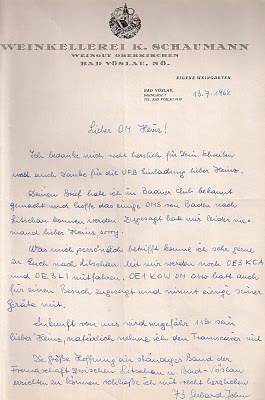 WEINKELLEREI K. SCHAUMANN
WEINGUT OBERKIRCHEN
BAD VÖSLAU, NÖ.
EIGENE WEINGÄRTEN
BAD VÖSLAU,
13.7.1968
Lieber OM Heinz!
Ich bedanke mich recht herzlich für Dein Schreiben
und auch Danke für die UFB Einladung lieber Heinz.
Deinen Brief habe ich im Badner Club bekannt
gemacht und hoffe das einige OMS von Baden nach
Litschau kommen werden. Zugesagt hat mir leider nie-
mand lieber Heinz, sorry.
Was mich persönlich betrifft komme ich sehr gerne
zu Euch nach Litschau. Mit mir werden noch OE3KCA
und OE3LI mitfahren. OE1KOW OM Otto hat auch
für einen Besuch zugesagt und nimmt einige seiner
Geräte mit.
Ankunft von uns wird ungefähr 11h sein
lieber Heinz, natürlich nehme ich den Transceiver mit.
Die große Hoffnung ein ständiges Band der
Freundschaft zwischen Litschau und Bad-Vöslau
errichten zu können schließe ich mit recht herzlichen
73